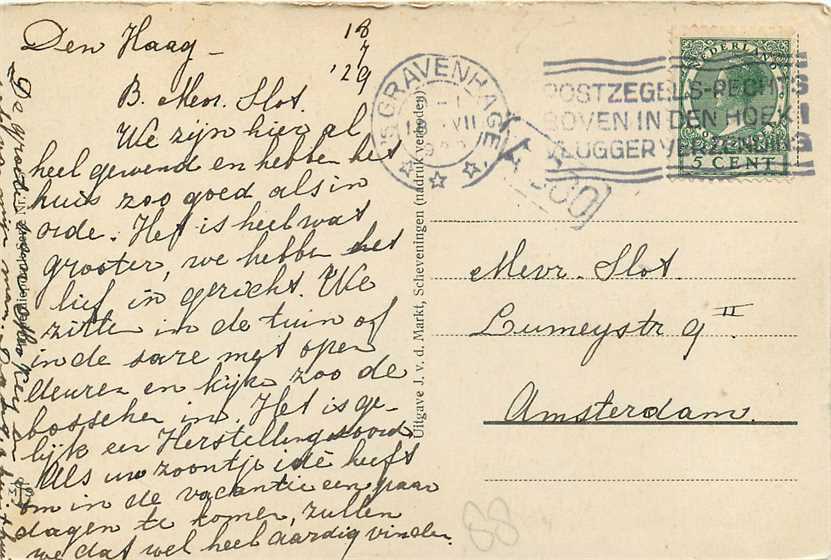 Den Haag - 18
7
'29
B. Mevr. Slot.
We zijn hier al
heel gewend en hebben het
huis zoo goed als in
orde. Het is heel wat
grooter, we hebben het
lief in gericht. We
zitten in de tuin of
in de sare met open
deuren en kijke zoo de
bosschen in. Het is ge-
lijk een Herstellingsoord
Als uw zoontje idee heeft
om in de vacantie een paar
dagen te komen, zullen
we dat wel heel aardig vinden.
De groeten
man
Uitgave J. v. d. Markt, Scheveningen (nadruk verboden)
'S GRAVENHAGE
VII
POSTZEGELS-RECHTS
BOVEN IN DEN HOEK!
VLUGGER VERZENDING
NEDERLAND
5 CENT
Mevr. Slot.
Lumeystr 9 II
Amsterdam.
88